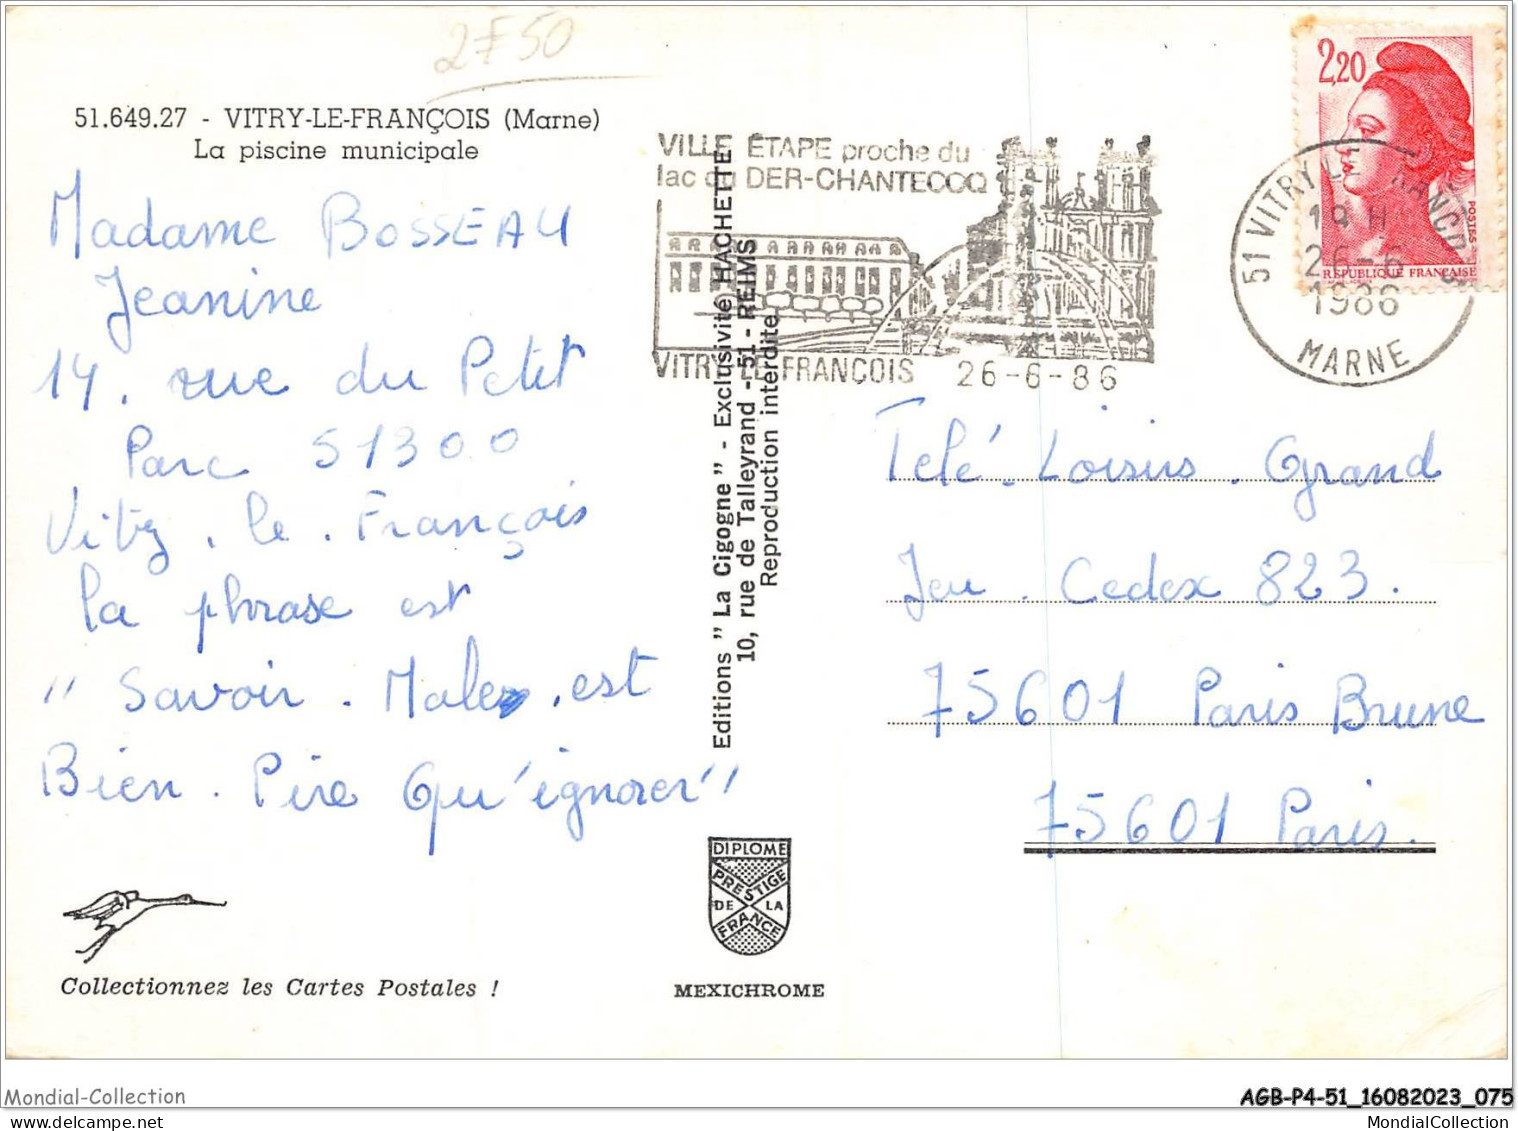 2F50
51.649.27 - VITRY-LE-FRANÇOIS (Marne)
La piscine municipale
Madame BOSSEAU
Jeanine
14. rue du Petit
Parc 51300
Vitry. le. François
la phrase est
" Savoir. Male, est
Bien. Pire Qu'ignorer"
Collectionnez les Cartes Postales !
VILLE ÉTAPE proche du
lac du DER-CHANTECOQ
VITRY-LE-FRANÇOIS 26-6-86
Editions " La Cigogne " - Exclusivité HACHETTE
10, rue de Talleyrand - 51 - REIMS
Reproduction interdite
DIPLOME
PRESTIGE
DE LA
FRANCE
MEXICHROME
2,20
POSTES
RÉPUBLIQUE FRANÇAISE
51 VITRY LE FRANCOIS
19 H
26-6
1986
MARNE
Télé. Loisirs. Grand
Jeu. Cedex 823.
75601 Paris Brune
75601 Paris.
Mondial-Collection
AGB-P4-51_16082023_075
MondialCollection